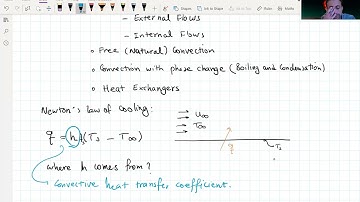 - External Flows
- Internal Flows
Free (Natural) Convection
Convection with phase change (Boiling and Condensation)
Heat Exchangers
Newton's law of cooling:
U∞
T∞
q = h (Ts - T∞)
Ts
q
where h comes from?
Convective heat transfer coefficient.